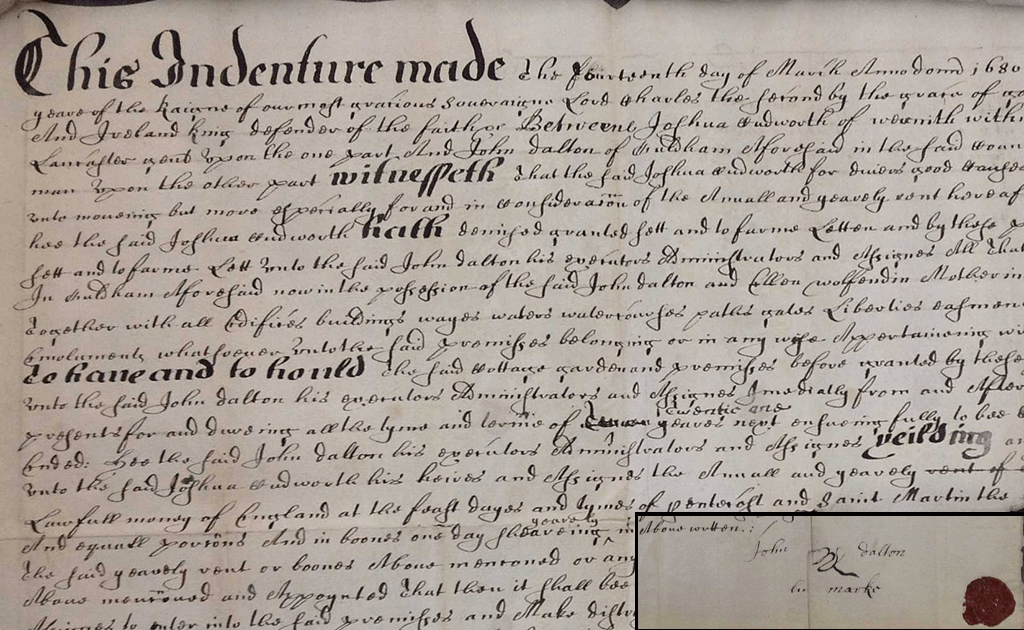 This Indenture made the fourteenth day of March Anno domi 1680
yeare of the Raigne of our most gratious Soveraigne Lord Charles the second by the grace of
And Ireland King defender of the faith &c Betweene Joshua Cudworth of Wernith within
Lancaster gent Upon the one part And John Dalton of Ouldham Aforesaid in the said
man Upon the other part Witnesseth That the said Joshua Cudworth for divers good
unto moveing but more especially for and in Consideracon of the Annuall and yearely rent
hee the said Joshua Cudworth hath demised granted sett and to farme Letten and by these
sett and to farme Lett Unto the said John Dalton his executors Administrators and Assignes All That
In Ouldham Aforesaid now in the possession of the said John Dalton and Ellen Wolfendin Mother in
Together with all Edifices buildings wayes waters watercourses paths gates Liberties
Emoluments whatsoever Unto the said premisses belonging or in any wise Appertaineing
To have and to hould the said Cottage garden and premisses before granted by these
unto the said John Dalton his executors Administrators and Assignes Imediatly from and After
presents for and dureing all the tyme and terme of twentie one yeares next ensueing fully to bee
Ended: hee the said John Dalton his executors Administrators and Assignes yeilding
Unto the said Joshua Cudworth his heires and Assignes the Annuall and yearely rent of
Lawfull money of England at the feast dayes and tymes of pentecost and Saint Martin the
And equall porcons And in boones one day sheareing yearely
the said yearely rent or boones Above mencioned or any
Above mencioned and Appoynted That then it shall bee
Assignes to enter into the said premisses and Make
Above written:
John Dalton
his marke